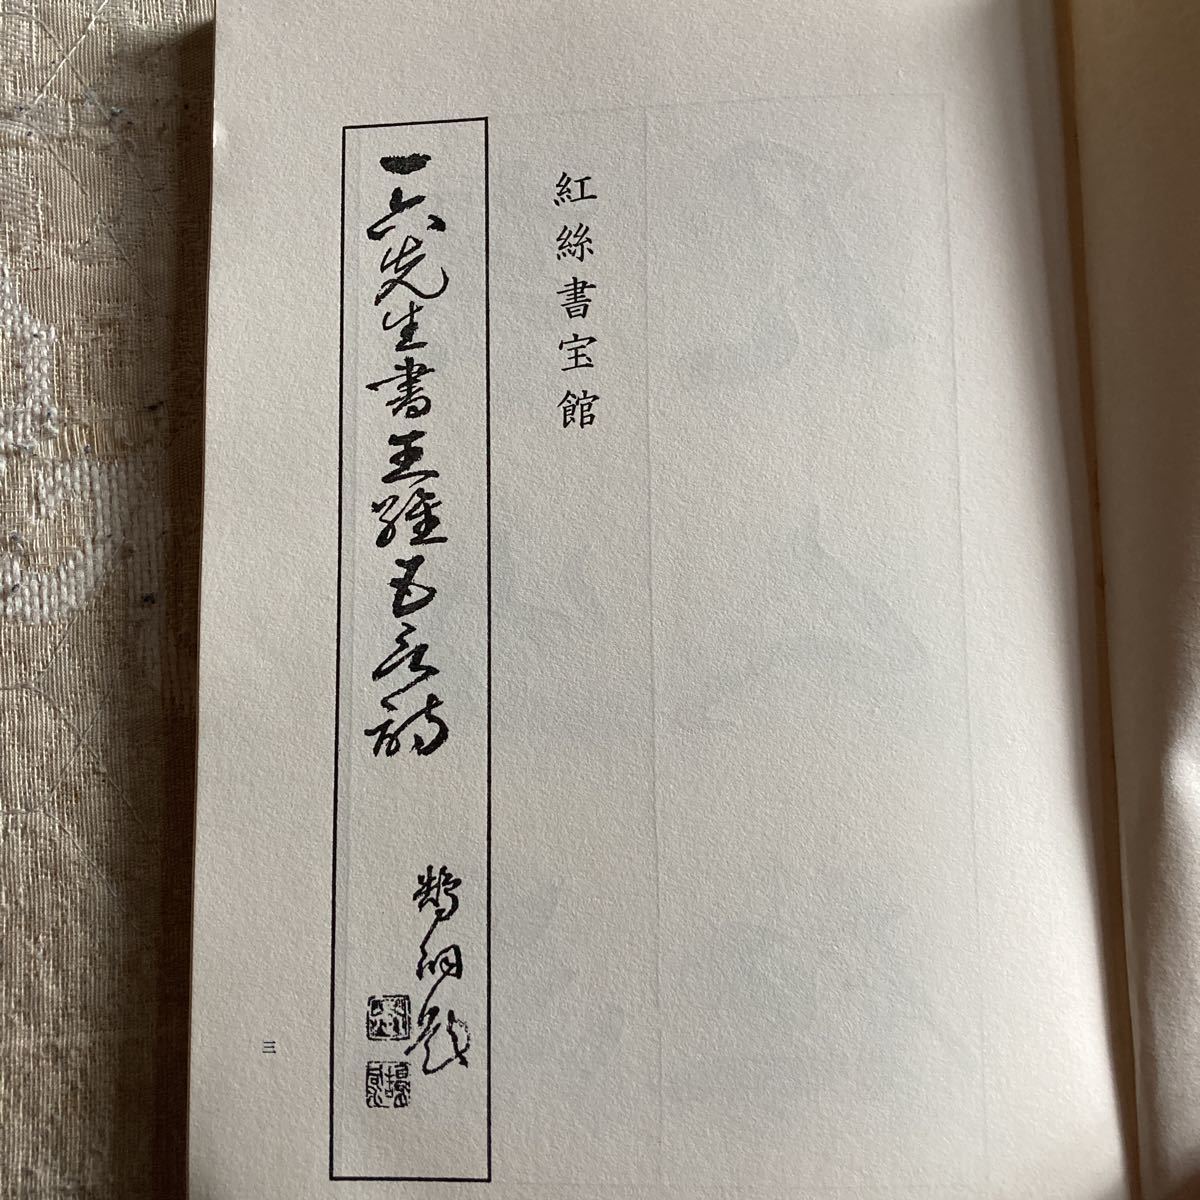 紅絲書宝館
一六先生書王維五言詩
題
三